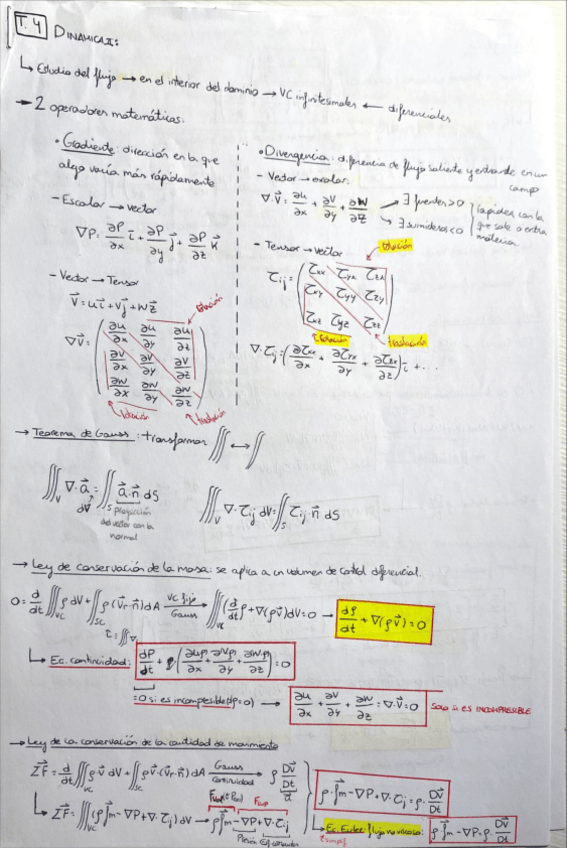 T. 4 DINAMICA II:
↳ Estudio del flujo → en el interior del dominio → VC infinitesimales ← diferenciales
→ 2 operadores matemáticos:
• Gradiente: dirección en la que
algo varía más rápidamente
- Escalar → vector
∇P = ∂P/∂x i + ∂P/∂y j + ∂P/∂z K
- Vector → Tensor
V = u i + v j + w z
rotación
∇V = ( ∂u/∂x ∂u/∂y ∂u/∂z
∂v/∂x ∂v/∂y ∂v/∂z
∂w/∂x ∂w/∂y ∂w/∂z )
rotación traslación
• Divergencia: diferencia de flujo saliente y entrante en un
campo
- Vector → escalar:
∇·V = ∂u/∂x + ∂v/∂y + ∂w/∂z → ∃ fuentes > 0
∃ sumideros < 0
rapidez con la
que sale o entra
materia
- Tensor → vector
rotación
τij = ( τxx τyx τzx
τxy τyy τzy
τxz τyz τzz )
rotación traslación
∇·τij = (∂τxx/∂x + ∂τyx/∂y + ∂τzx/∂z) i + ...
→ Teorema de Gauss: transformar ∭ ↔ ∬
∭V ∇·a dV = ∬S a·n dS
proyección
del vector con la
normal
∭V ∇·τij dV = ∬S τij·n dS
→ Ley de conservación de la masa: se aplica a un volumen de control diferencial.
0 = d/dt ∭VC ρ dV + ∬SC ρ (Vr·n) dA → VC fijo Gauss → ∭VC (d/dt ρ + ∇(ρV)) dV = 0 → dρ/dt + ∇(ρV) = 0
↳ Ec. continuidad: dρ/dt + (∂uρ/∂x + ∂vρ/∂y + ∂wρ/∂z) = 0
= 0 si es incompresible (dρ = 0) → ∂u/∂x + ∂v/∂y + ∂w/∂z = ∇·V = 0 SOLO SI ES INCOMPRESIBLE
→ Ley de la conservación de la cantidad de movimiento
ΣF = d/dt ∭VC ρV dV + ∬SC ρV·(Vr·n) dA → Gauss Continuidad → ρ DV/Dt
a
↳ ΣF = ∭VC (ρ fm - ∇P + ∇·τij) dV → ρ fm - ∇P + ∇·τij
Fsup
Presión
ρ·fm - ∇P + ∇·τij = ρ·DV/Dt
↳ Ec. Euler: flujo no viscoso: ρ fm - ∇P = ρ·DV/Dt